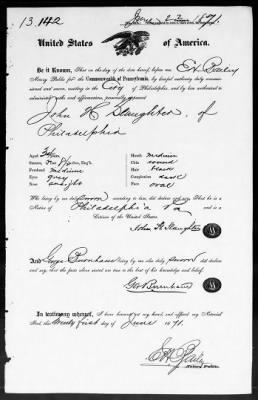 13.142
June 22 1871.
United States of America.
Be it Known, That on the day of the date hereof, before me E H Bailey
Notary Public for the Commonwealth of Pennsylvania, by lawful authority duly commis-
sioned and sworn, residing in the City of Philadelphia, and by law authorized to
administer oaths and affirmations, personally appeared
John H Slaughter, of
Philadelphia
Age
Stature,
Forehead medium
Eyes grey
Nose straight
Mouth medium
Chin round
Hair black
Complexion dark
Face oval
Who being by me duly sworn according to law, did declare and say, That he is a
Native of Philadelphia Pa and a
Citizen of the United States.
John H. Slaughter
And George Burnham being by me also duly sworn did declare
and say, that the facts above stated are true to the best of his knowledge and belief.
Geo Burnham
In testimony whereof, I have hereunto set my hand, and affixed my Notarial
Seal, this twenty first day of June 1871.
E H Bailey
Notary Public.